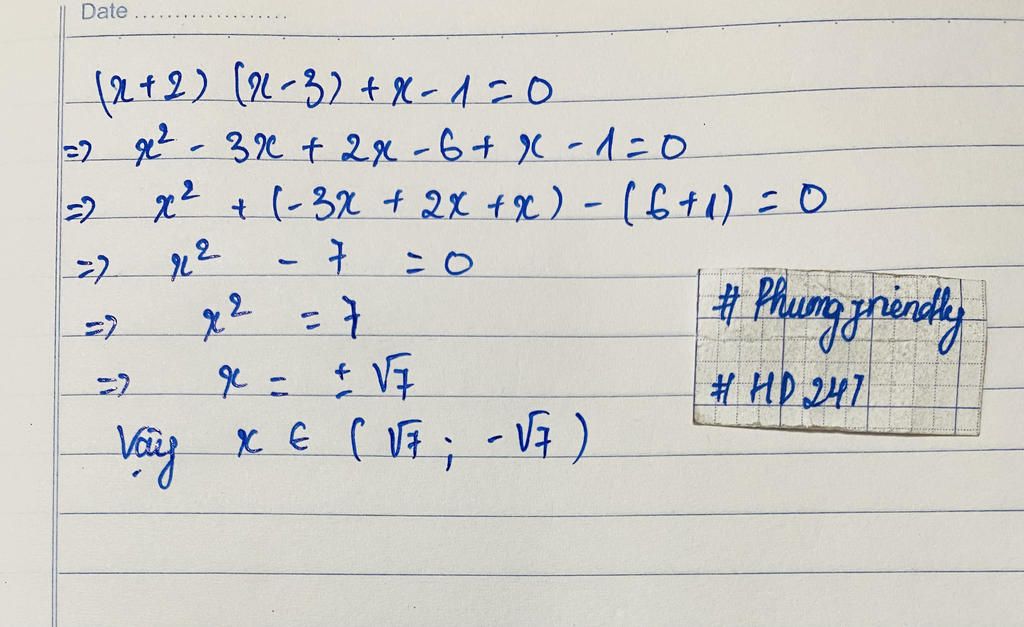 Date ....................
(x+2) (x-3) + x - 1 = 0
=> x² - 3x + 2x - 6 + x - 1 = 0
=> x² + (-3x + 2x + x) - (6+1) = 0
=> x² - 7 = 0
=> x² = 7
=> x = ± √7
Vậy x ∈ ( √7 ; -√7 )
# Phumg friendly
# HD 247